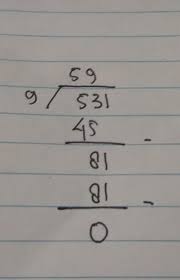 59
9 531
45 -
81
81 -
0